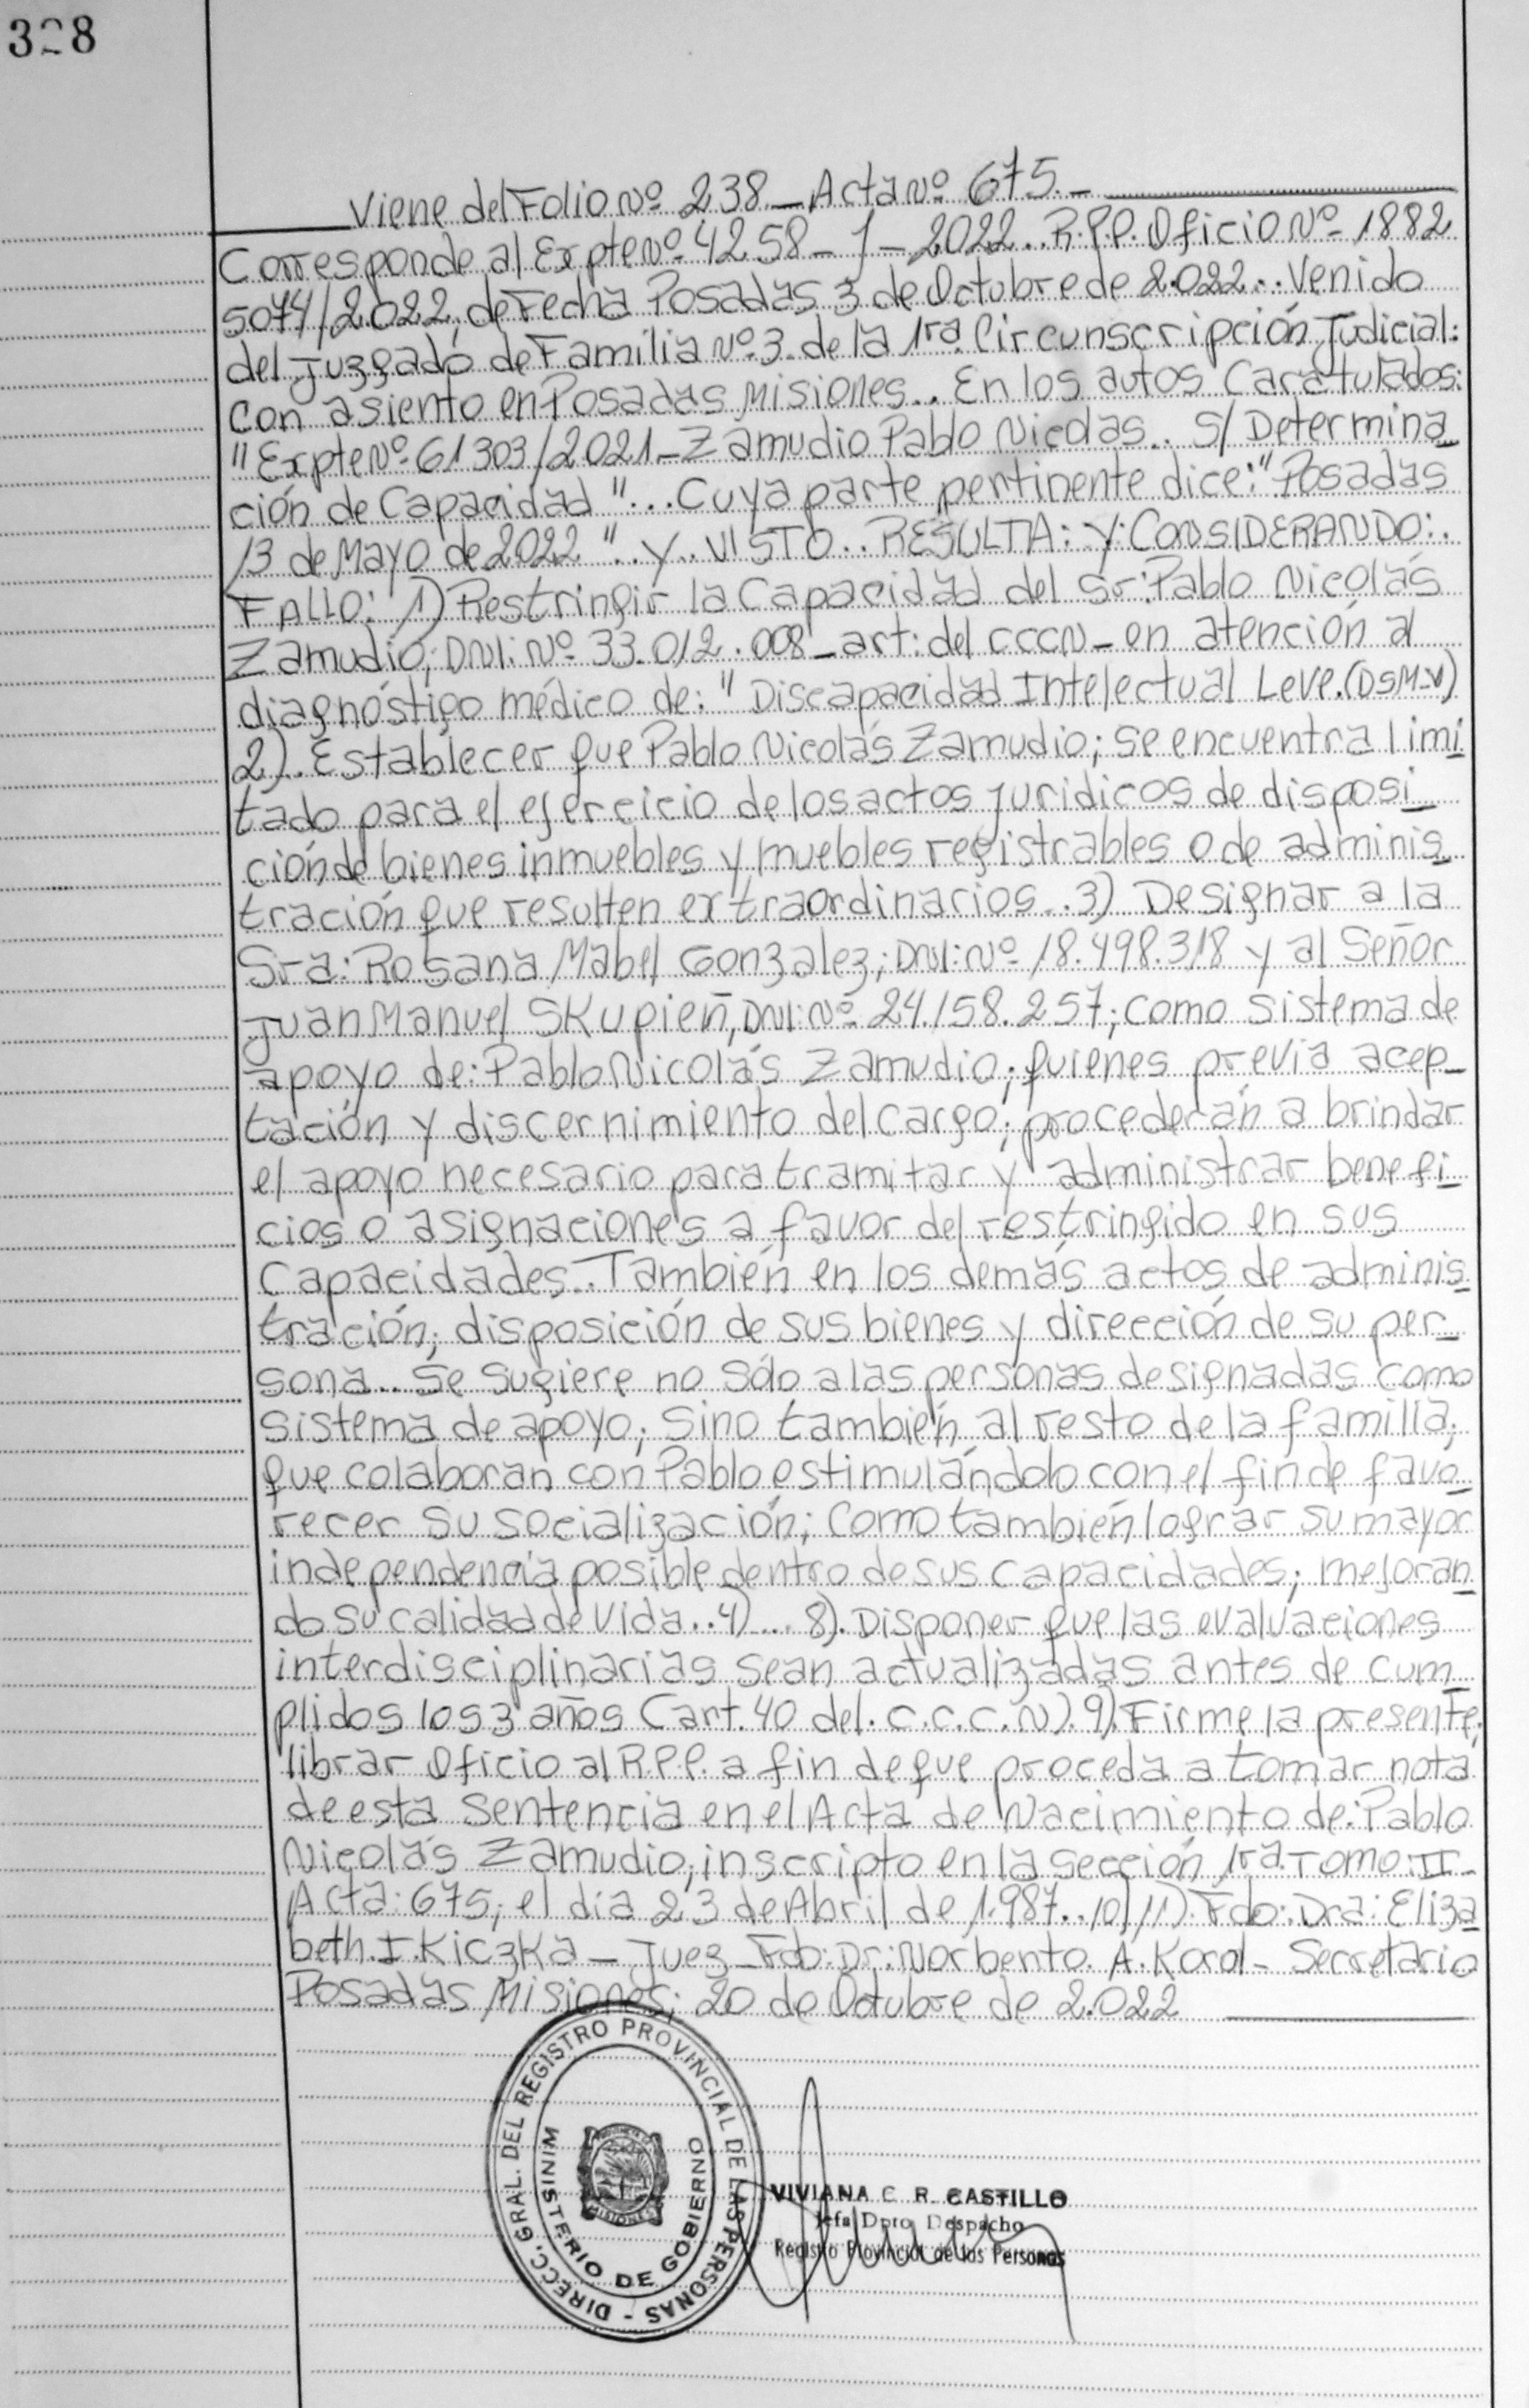 328
Viene del Folio Nº 238 - Acta Nº 675.-
Corresponde al Expte Nº 4258 - J - 2022.. R.P.P. Oficio Nº 1882
5074/2022, de Fecha Posadas 3 de Octubre de 2.022.. Venido
del Juzgado de Familia Nº 3 de la 1ra. Circunscripción Judicial:
con asiento en Posadas Misiones.. En los autos Caratulados:
"Expte Nº 61303/2021 - Zamudio Pablo Nicolas.. S/ Determina
ción de Capacidad"... Cuya parte pertinente dice: "Posadas
13 de Mayo de 2022".. Y.. VISTO.. RESULTA: Y: CONSIDERANDO:.
FALLO: 1) Restringir la Capacidad del Sr: Pablo Nicolás
Zamudio; DNI: Nº 33.012.008 - art: del CCCN - en atención al
diagnóstigo médico de: "Discapacidad Intelectual Leve. (DSM-V)
2).. Establecer que Pablo Nicolás Zamudio; se encuentra limi
tado para el ejercicio de los actos jurídicos de disposi
ción de bienes inmuebles y muebles registrables o de adminis
tración que resulten extraordinarios.. 3) Designar a la
Sra: Rosana Mabel Gonzalez; DNI: Nº 18.498.318 y al Señor
Juan Manuel Skupieñ, DNI: Nº 24.158.257; como sistema de
apoyo de: Pablo Nicolás Zamudio; quienes previa acep-
tación y discernimiento del cargo; procederán a brindar
el apoyo necesario para tramitar y administrar benefi
cios o asignaciones a favor del restringido en sus
Capacidades.. También en los demás actos de adminis
tración; disposición de sus bienes y dirección de su per
sona.. Se sugiere no sólo a las personas designadas como
sistema de apoyo; sino también al resto de la familia;
que colaboran con Pablo estimulándolo con el fin de favo
recer su socialización; Como también lograr su mayor
independencia posible dentro de sus capacidades; mejoran
do su calidad de vida.. 4).... 8). Disponer que las evaluaciones
interdisciplinarias sean actualizadas antes de cum
plidos los 3 años (art. 40 del. C.C.C.N). 9). Firme la presente;
librar Oficio al R.P.P. a fin de que proceda a tomar nota
de esta sentencia en el Acta de Nacimiento de: Pablo
Nicolás Zamudio; inscripto en la sección 1ra. Tomo: II-
Acta: 675; el día 23 de Abril de 1.987.. 10) 11). Fdo: Dra: Eliza
beth. I. Kiczka - Juez - Fdo: Dr: Norbento. A. Korol - Secretario
Posadas Misiones; 20 de Octubre de 2.022
DIRECC. GRAL. DEL REGISTRO PROVINCIAL DE LAS PERSONAS -
MINISTERIO DE GOBIERNO
MISIONES
VIVIANA C. R. CASTILLO
Jefa Dpto Despacho
Registro Provincial de las Personas